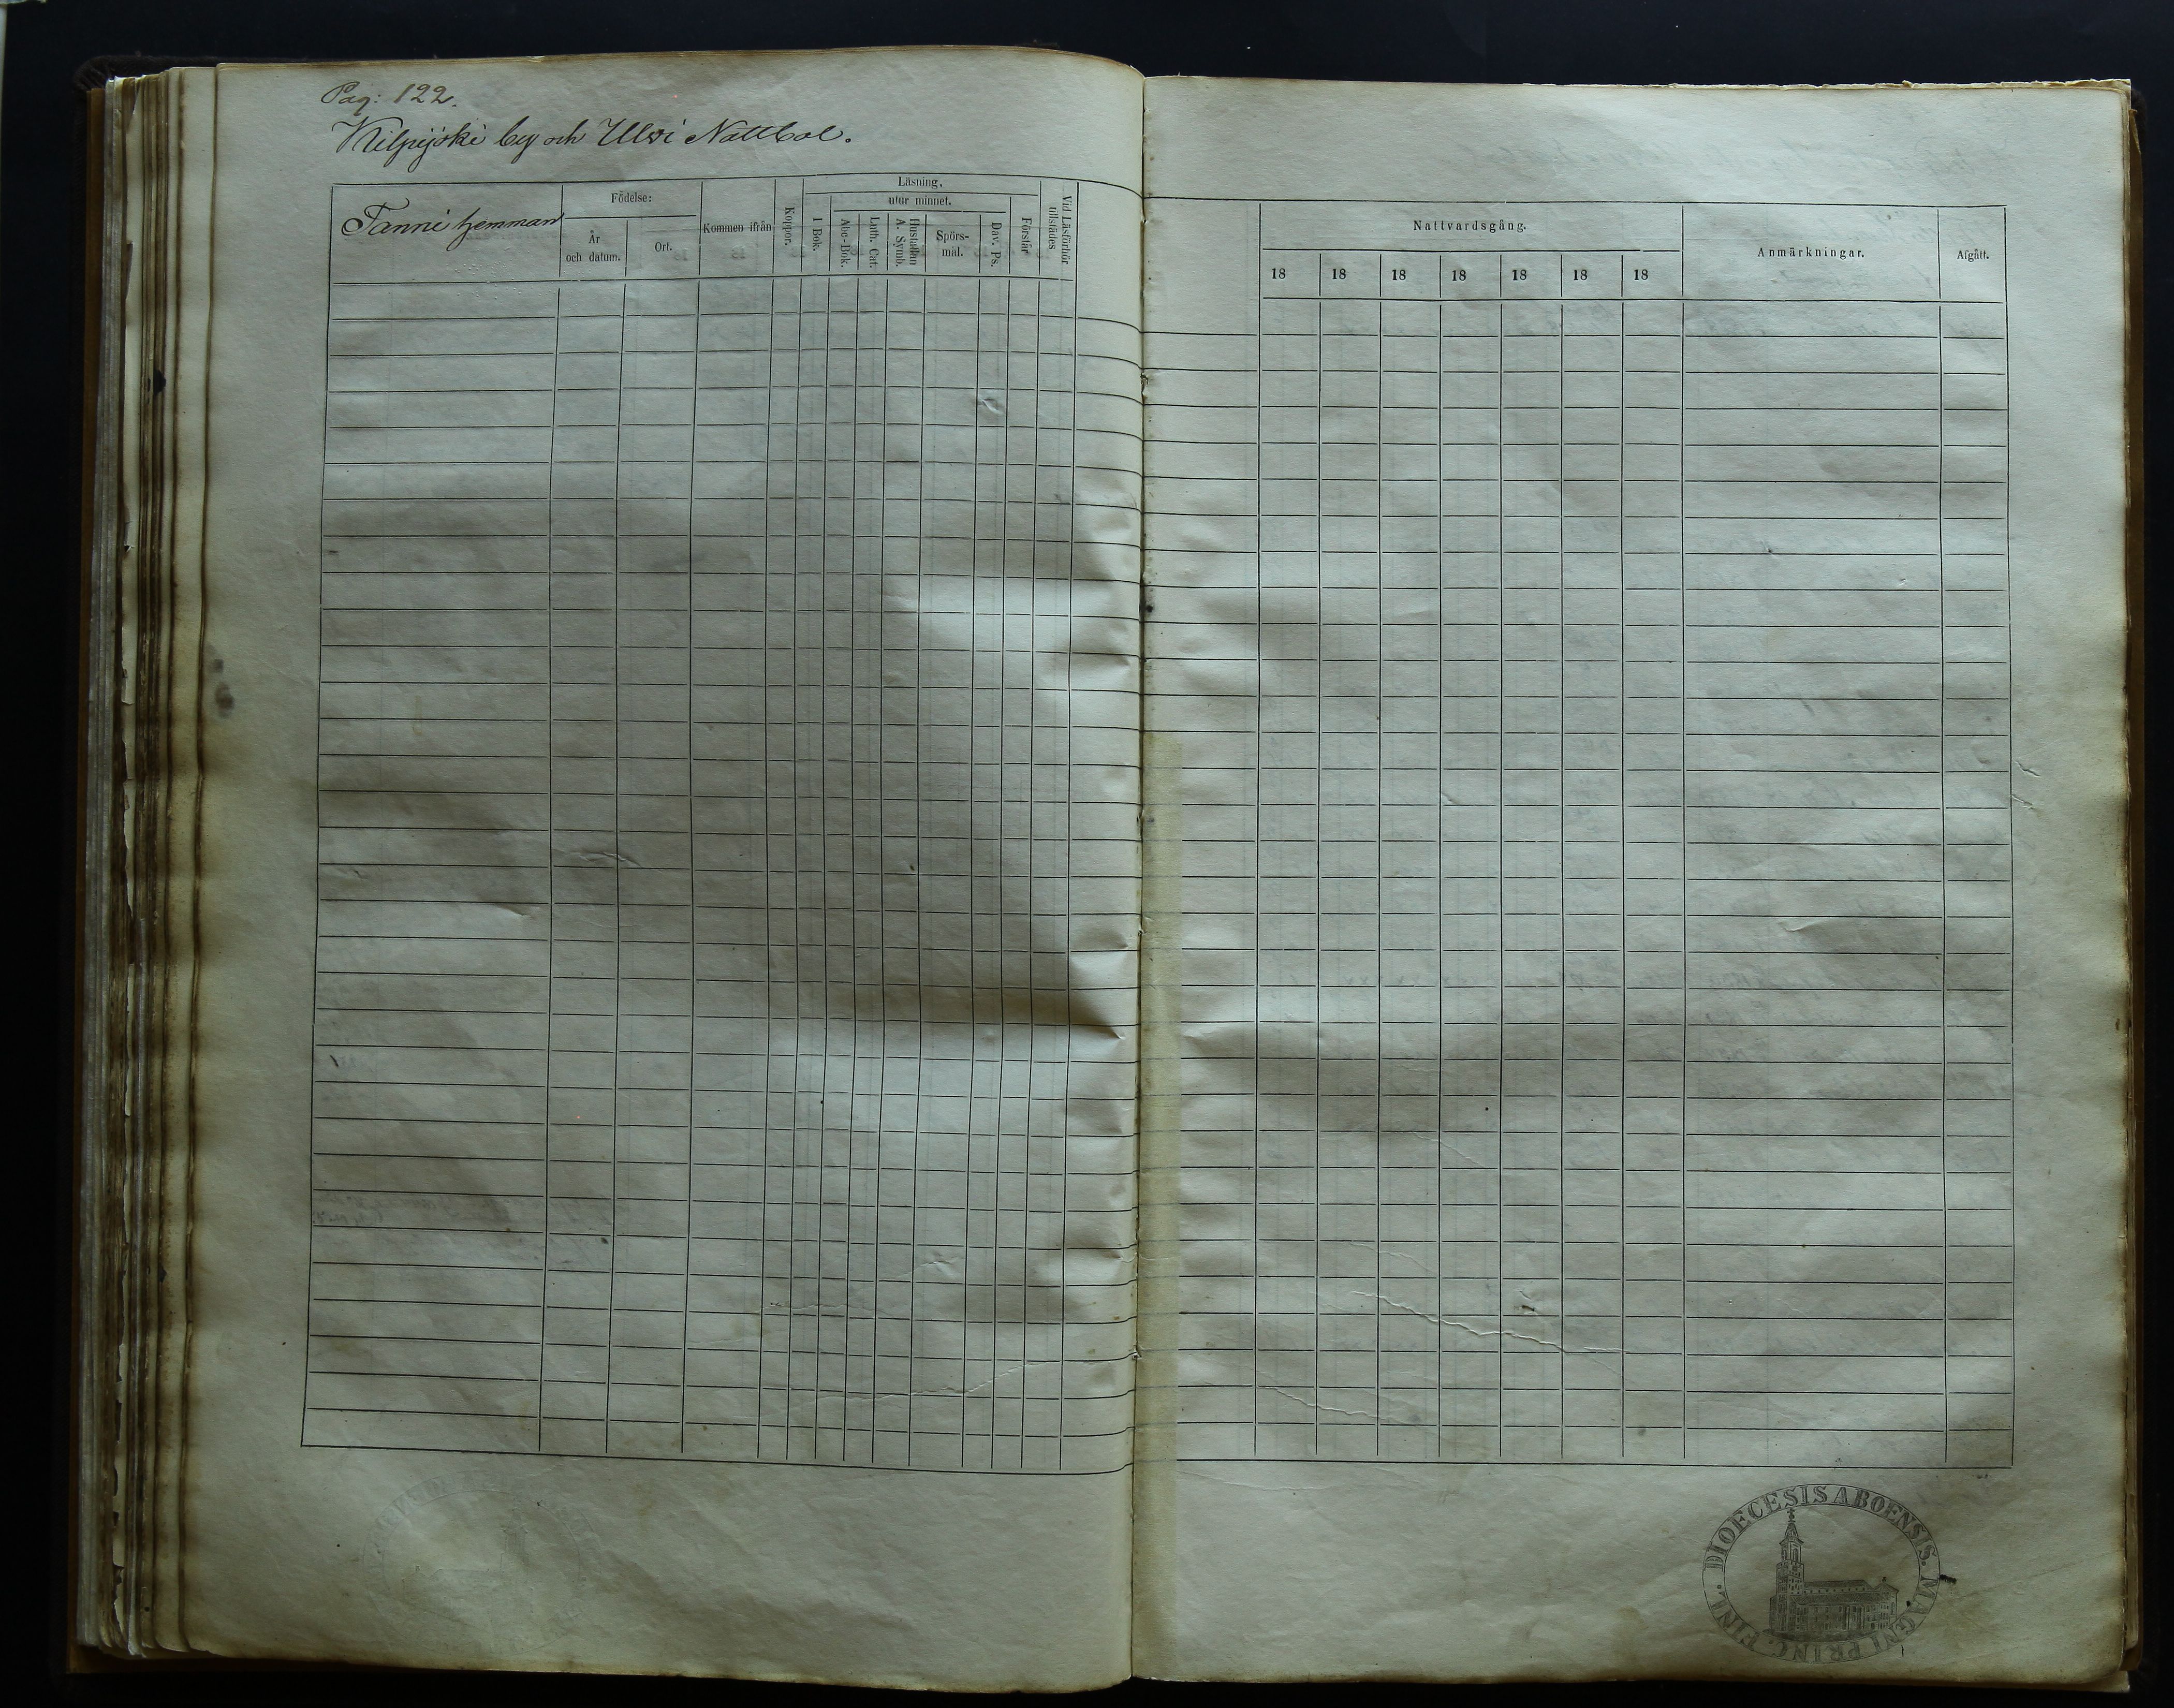 Pag: 122.
Kilpijoki by och Ulvi Nattbol.
Tanni hemman
Födelse:
År
och datum.
Ort.
Kommen ifrån
Koppor.
Läsning,
I Bok.
utur minnet.
Abc-Bok.
Luth. Cat.
Hustaflan
A. Symb.
Spörs-
mål.
Dav. Ps.
Förstår
Vid Läsförhör
tillstädes
Nattvardsgång.
18 18 18 18 18 18 18
Anmärkningar.
Afgått.
DIOECESIS ABOENSIS. MAGNI PRINC. FINL.